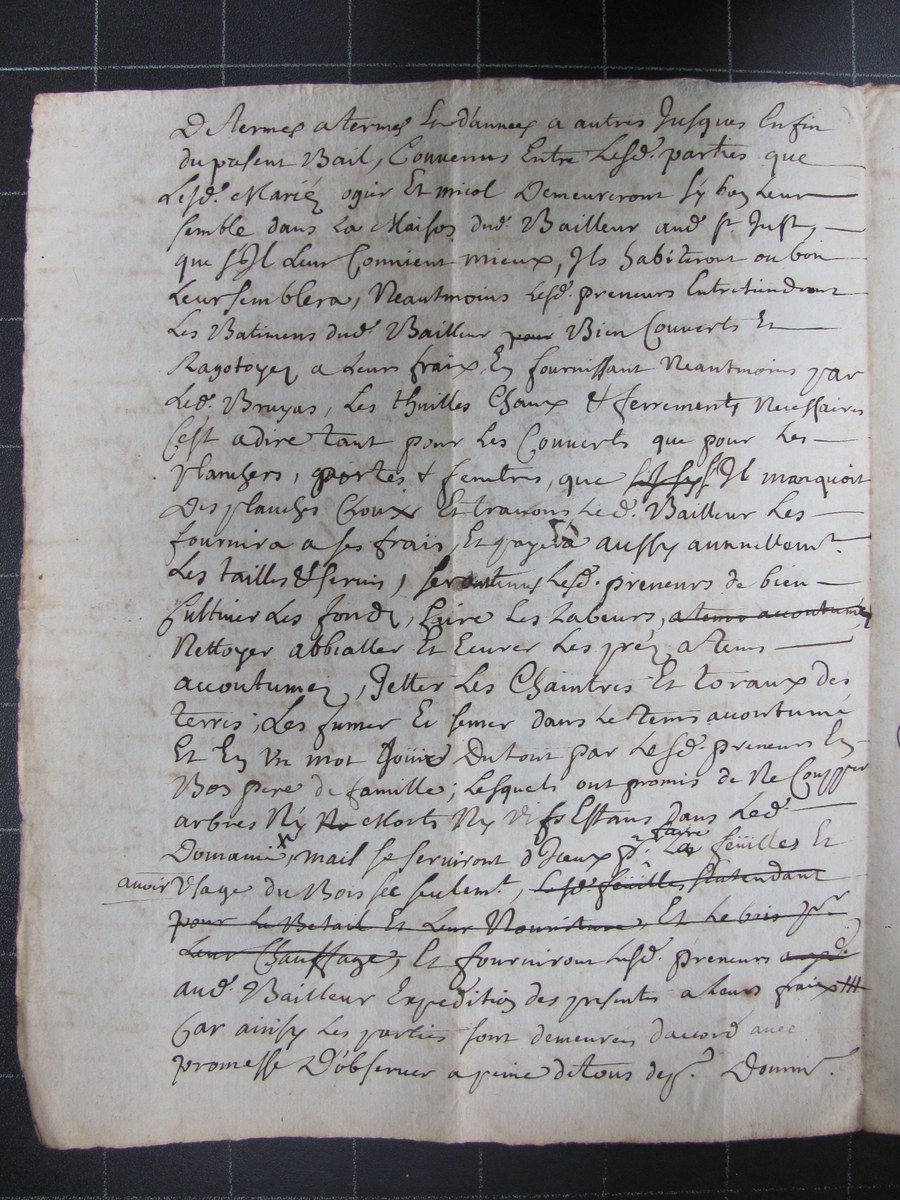 De termes a termes Et dannees a autres Jusques Enfin
du present Bail, Convenus Entre Lesd. parties que
Lesd. Mariez ogier Et micol Demeureront sy bon Leur
semble dans La Maison dud. Bailleur aud. st Just,
que s'Il Leur Convient mieux, Ils habiteront ou bon
Leur semblera, Neautmoins Lesd. preneurs Entretiendront
Les Batimens dud. Bailleur pour Bien Couverts Et
Ragotoyez a Leurs fraix, En fournissant Neautmoins par
Led. Bruyas, Les thuilles Chaux & ferrements Necessaires
C'est adire tant pour Les Couverts que pour Les
planchers, portes & fenetres, que s'Il manquoit
Des planches Et travons Led. Bailleur Les
fournira a ses frais, Et payera aussy annuellemt.
Les tailles & servis, seront tenus Lesd. preneurs de bien
Cultiver Les fonds, faire Les Labeurs, a tems accoutumez
Nettoyer abbialler Et Ecurer Les préz a tems
accoutumez, Jetter Les Chaintres Et toraux des
terres, Les fumer Et semer dans Le tems accoutumé
Et En Un mot Jouir Du tout par Lesd. preneurs En
Bon pere de famille; Lesquels ont promis de Ne Coupper
arbres Ny Morts Ny vifs Estans dans Led.
Domaine, mais se serviront d'Iceux pr. faire La feuilles Et
avoir Usage du Bois sec seulemt., Lesd. feuilles s'entendant
pour Le Betail Et Leur Nourriture, Et Le bois pr.
Leur Chauffage, Et fourniront Lesd. preneurs
aud. Bailleur Expedition des presentes a Leurs fraix
Car ainsy Les parties sont demeurees d'accord avec
promesse D'observer a peine de tous dep. Domm.